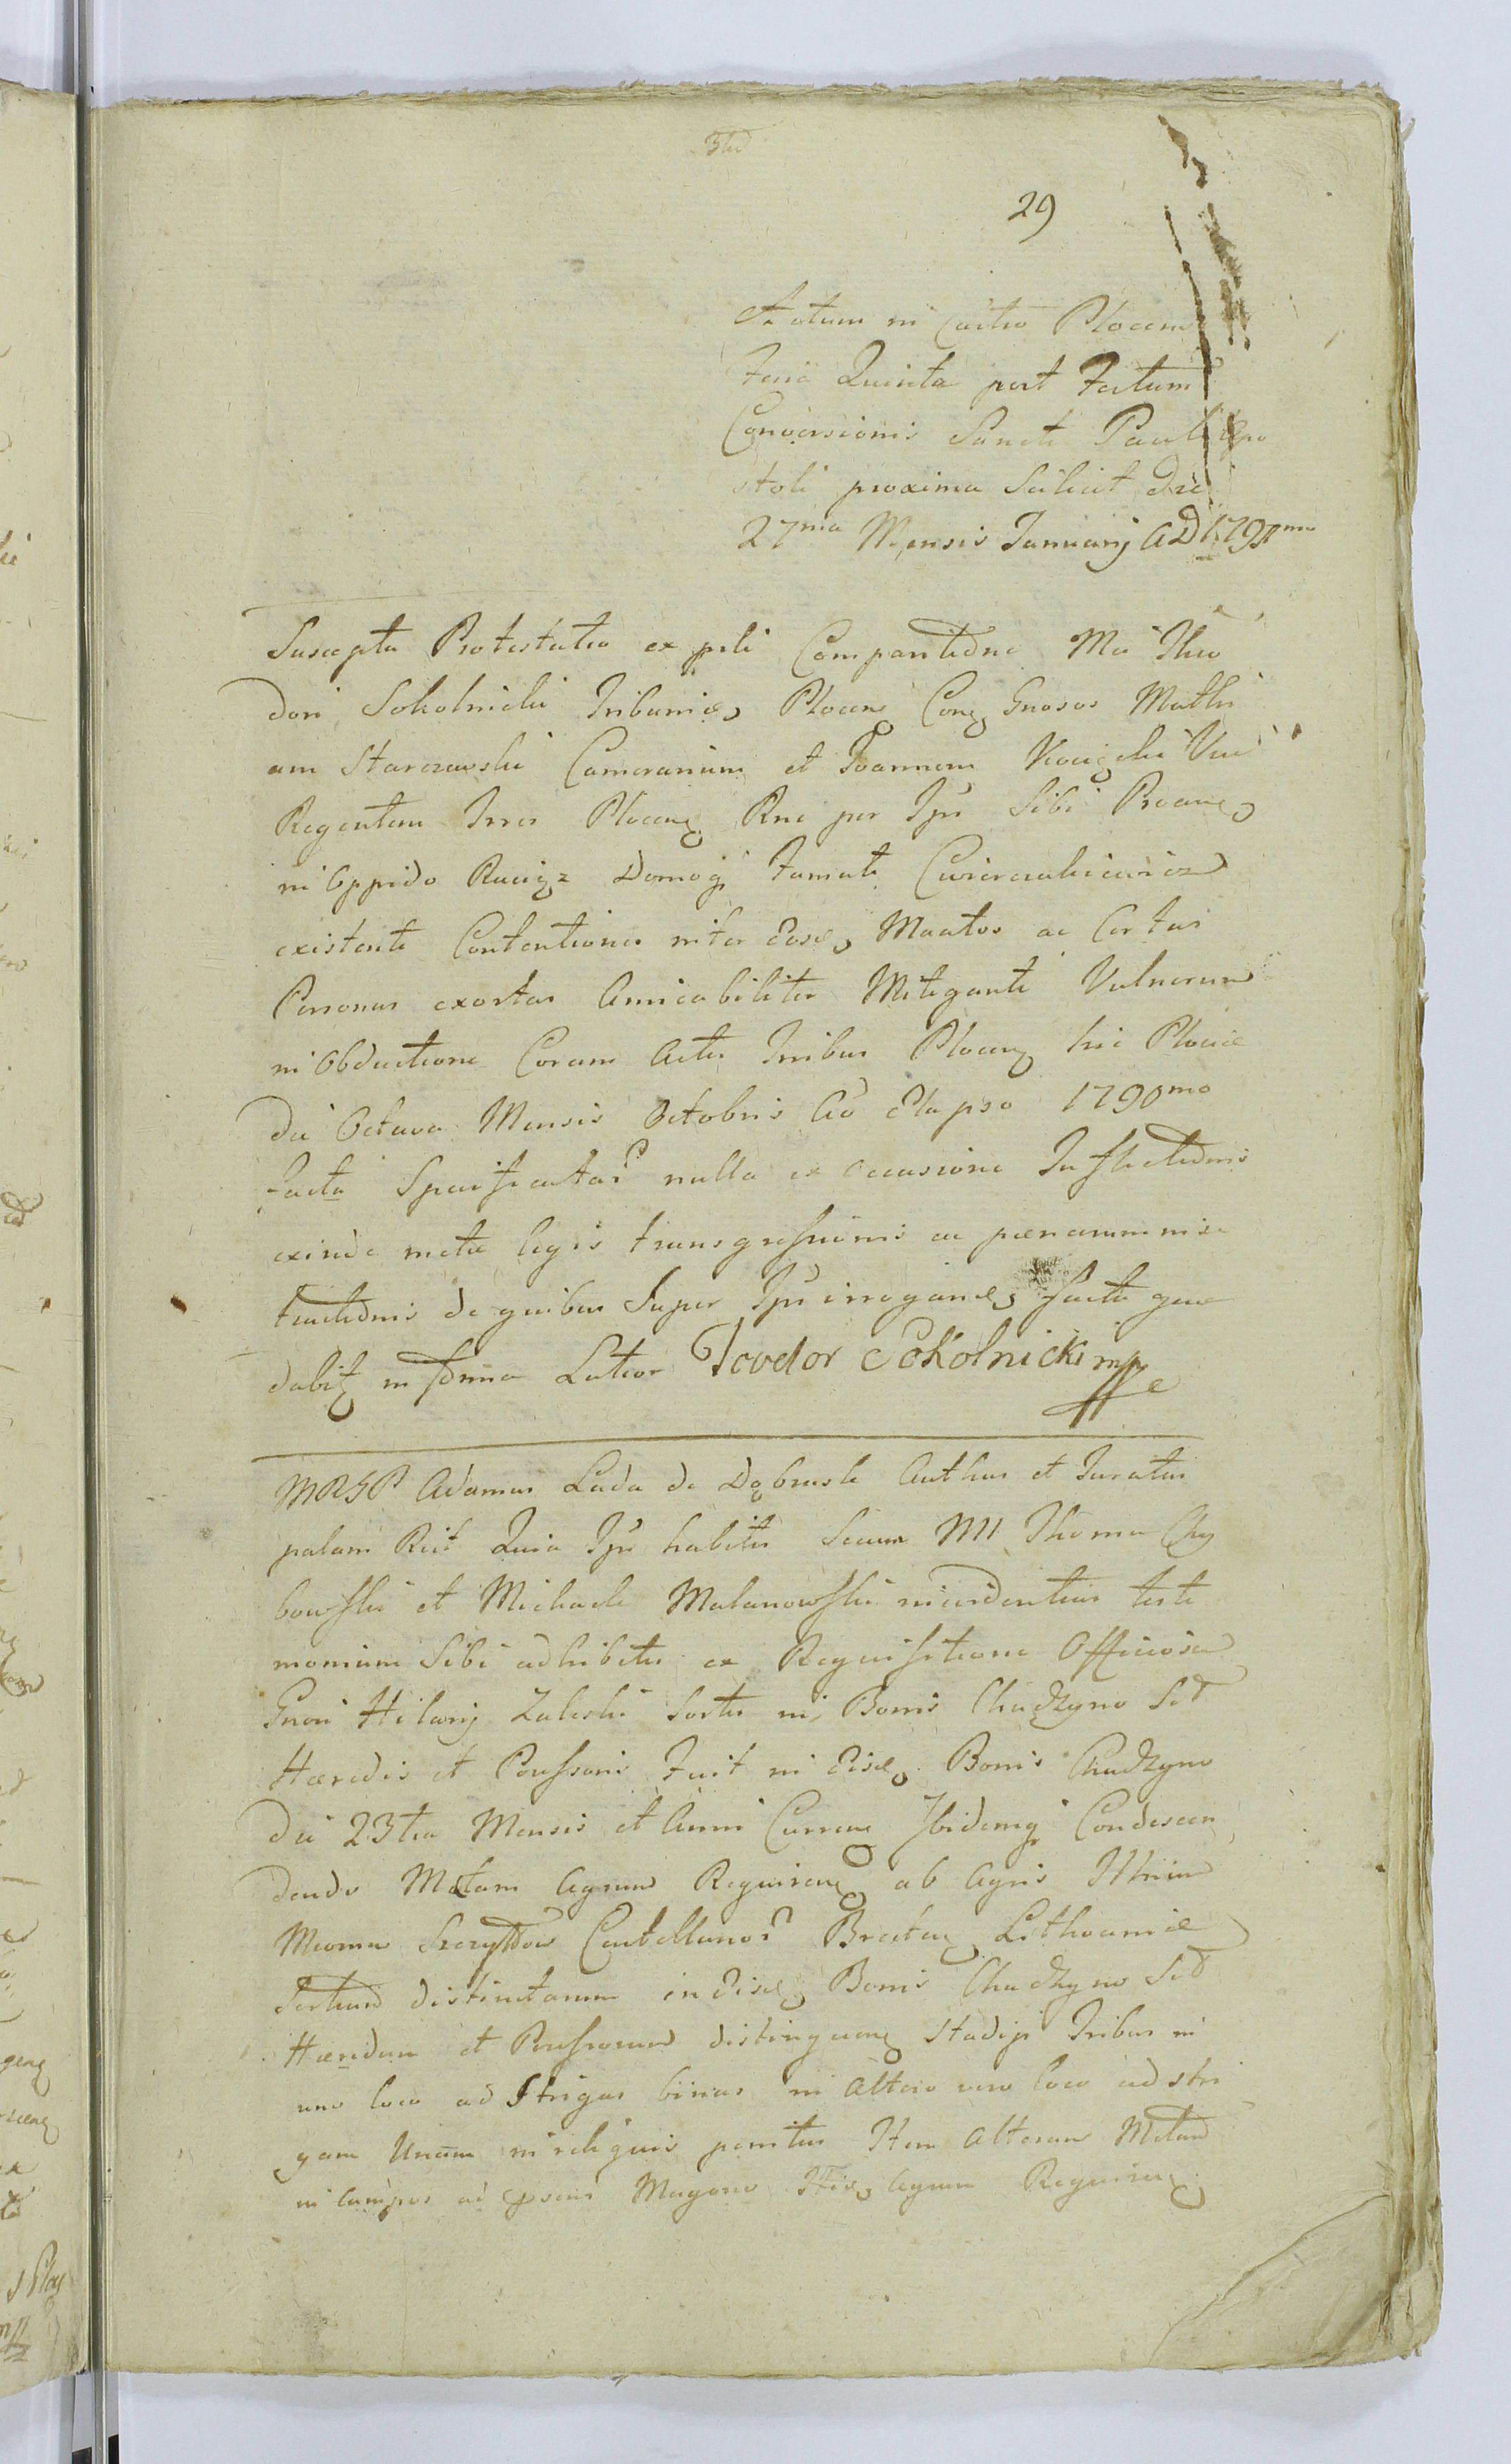 29
Actum in Castro Plocen
Feria Quinta post Festum
Conversionis Sancti Pauli Apo
stoli proxima Scilicet die
27ma Mensis Januarij AD 1791mo
Suscepta Protestatio ex prli Comparitione Mci Theo
dori Sokolnicki Tribunidae Plocen Con Gnosos Mathi
am Starczewski Camerarium et Joannem Kocięcki Vice
Regentem Trris Plocen Rne per Ipsos Sibi
in Oppido Raciąz Domoq Famati
existente Contentiones inter Eosd Maatos ac Certas
Personas exortas Amicabiliter Mitiganti Vulnerum
in Obductione Coram Actis Trribus Plocen hic Plociae
die Octava Mensis Octobris Ao Elapso 1790mo
facta Specificator nulla ex Occasione Inflictionis
exinde metu legis transgressionis ac paenarum in se
tractionis de quibus Super Ipsos irrogand facta quae
dabit in forma Latior Teodor Sokolnicki mp
MRGP Adamus Lada de Dąbrusk Authus et Juratus
palam Rcit Quia Ipse habitis Secum MM Thoma Chy
bowski et Michaele Malanowski in evidentius testi
monium Sibi adhibitis ex Requisitione Officiosa
Gnosi Hilarij Zaleski Sortis in Bonis Chudzyno Sitt
Haeredis et Possessoris Fuit in Eisd Bonis Chudzyno
die 23tia Mensis et Anni Curren Ibidemq Condescen
dendo Metam Agrum Requiren ab Agris Illrium
Mcorum Szczyttow Castellanor Bresten Lithvaniae
Sortium distinctarum in Eisd Bonis Chudzyno Sitt
Haeredum et Possessorum distinguen Stadijs Tribus in
uno loco ad Strigas binas in altero vero loco ad stri
gam Unam in reliquis penitus Item Alteram Metam
in campos ad Magores Agrum Requiren